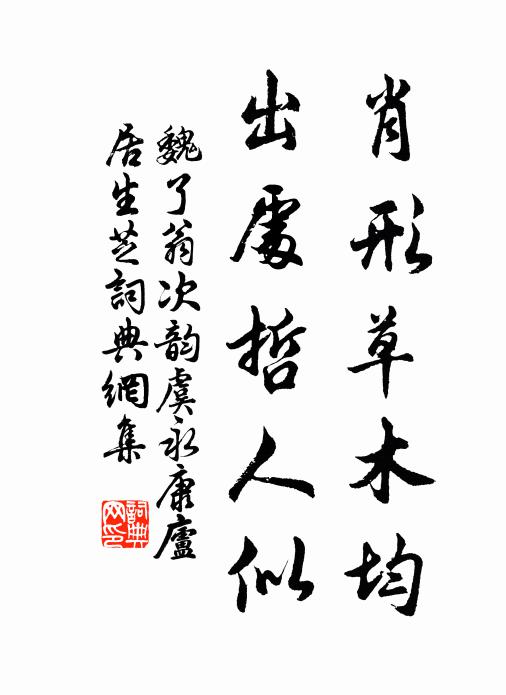 肖形草木均
出處哲人似
魏了翁次韵虞永康廬
居生芝詞典網集
詞典
网印